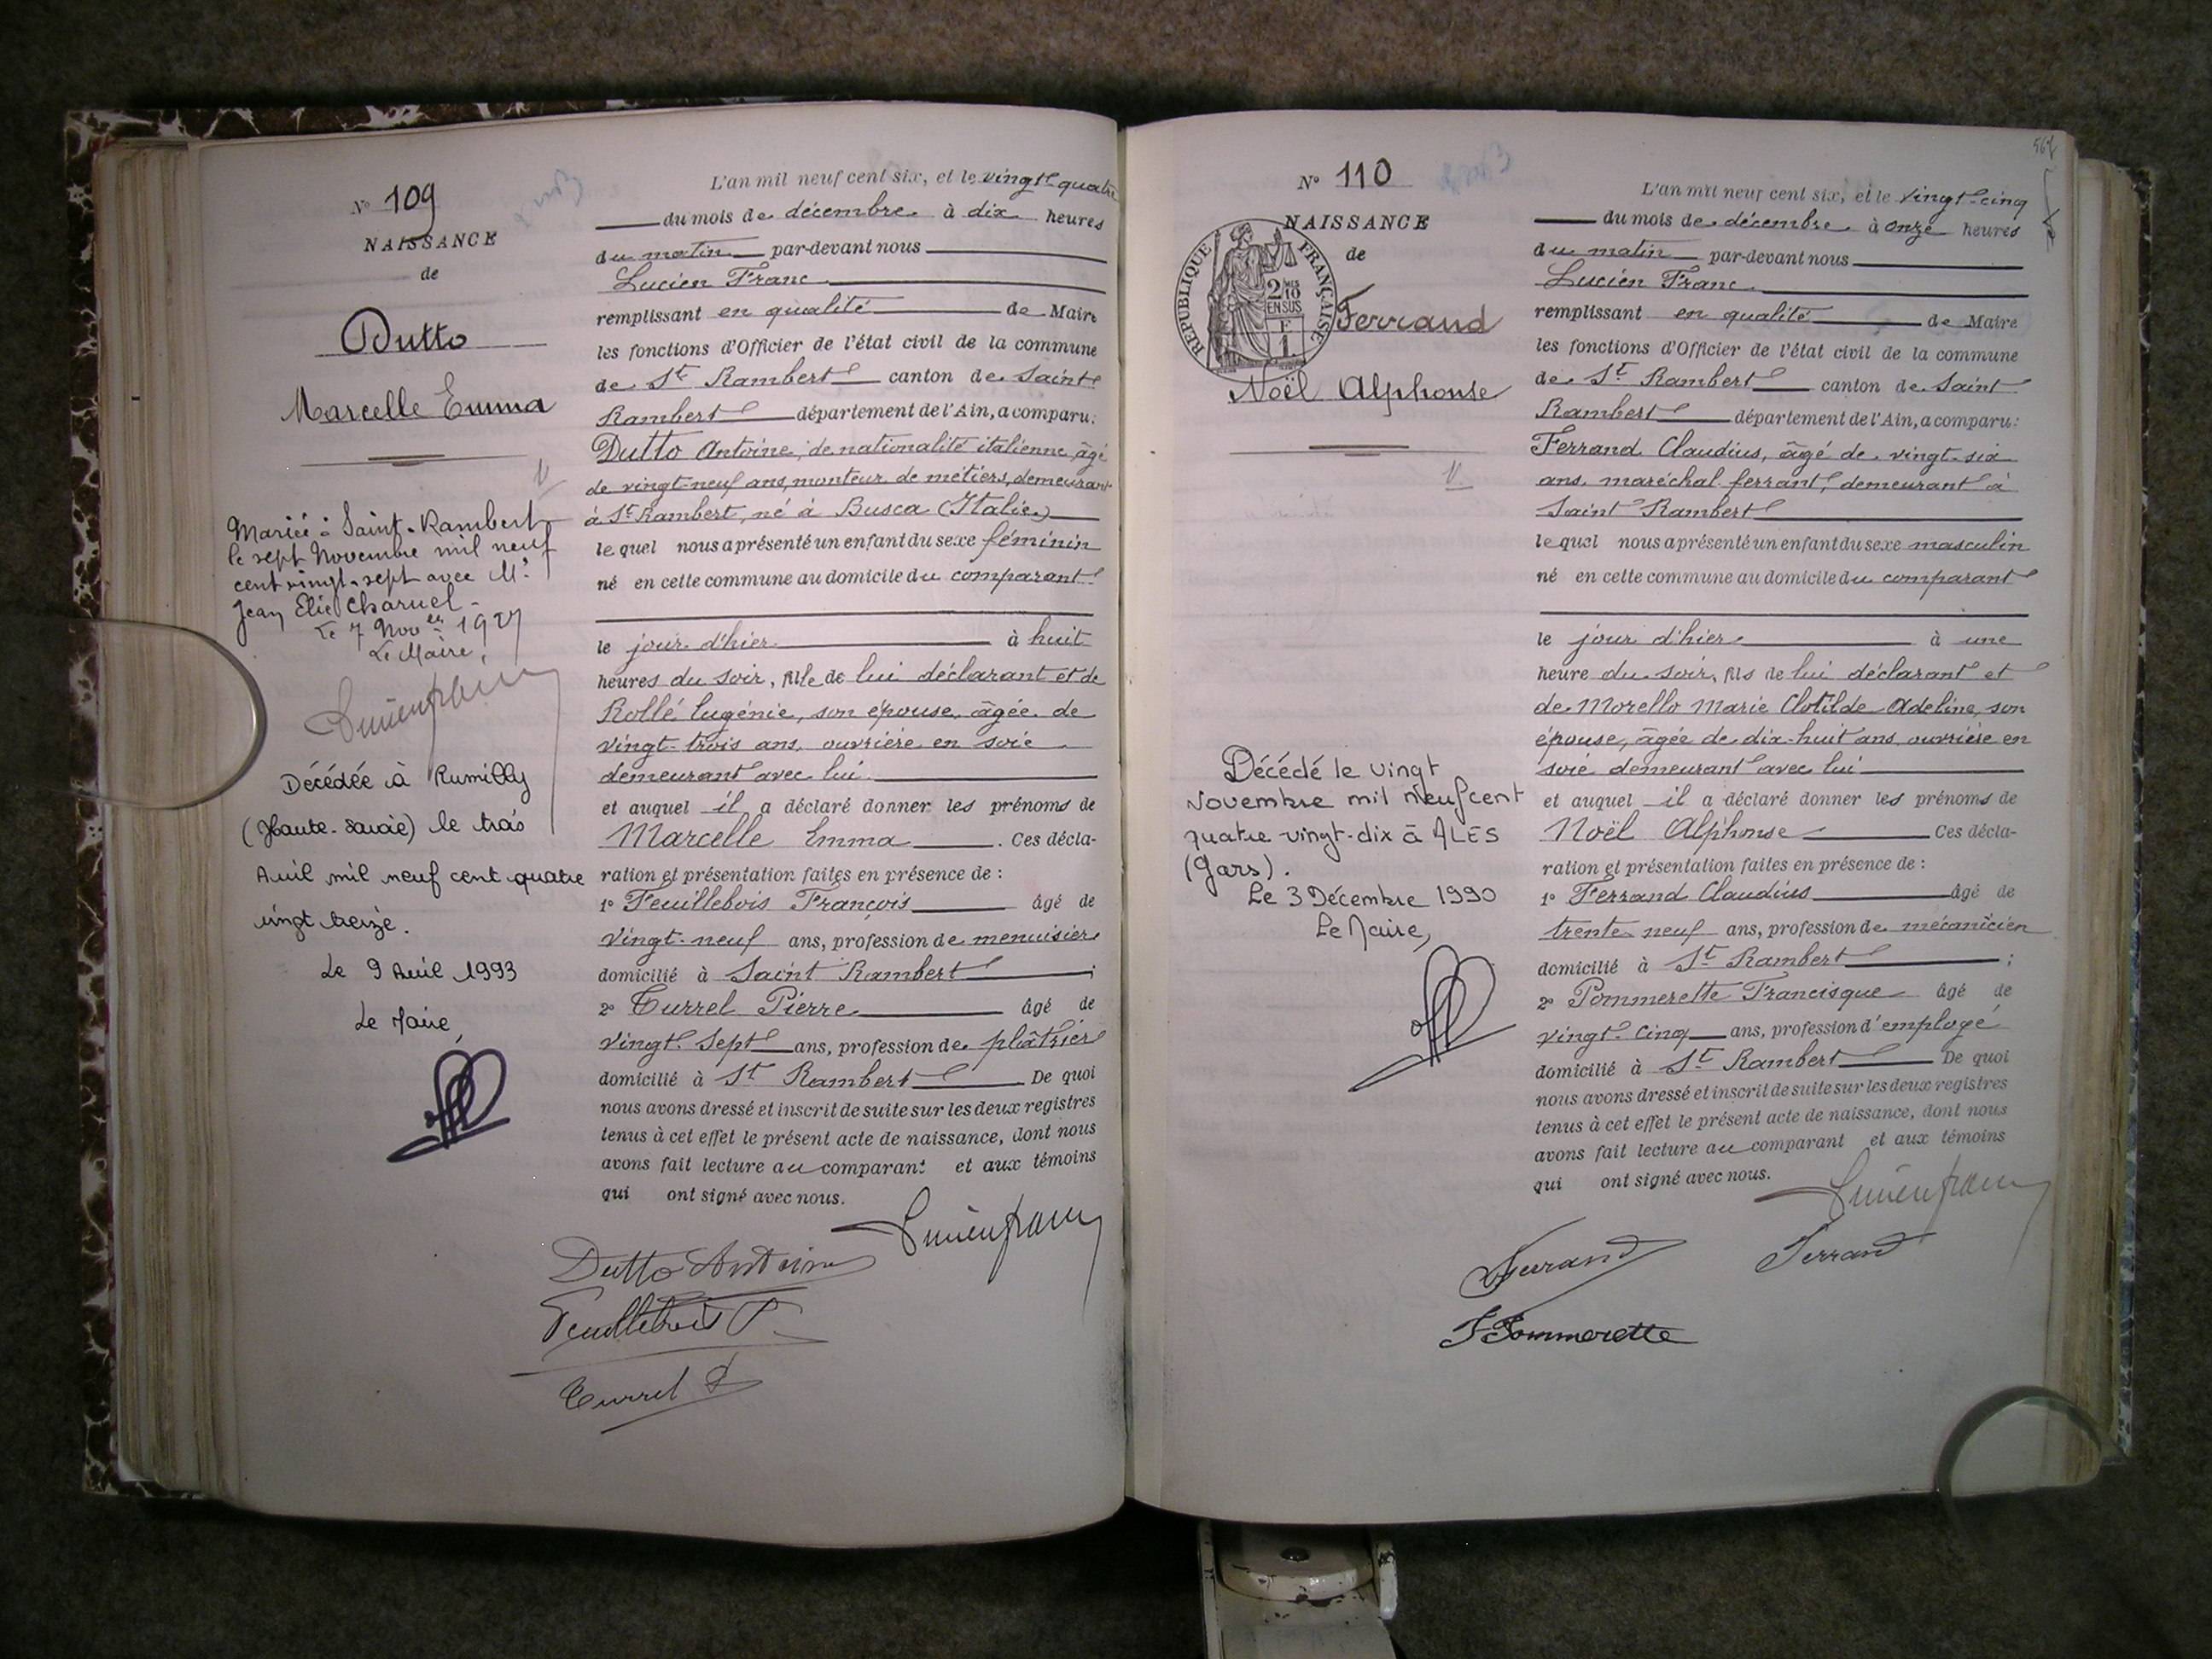 N° 109
NAISSANCE
de
Dutto
Marcelle Emma
V
Mariée à Saint-Rambert
le sept Novembre mil neuf
cent vingt-sept avec Mr
Jean Elie Charuel -
Le 7 Novbre 1927
Le Maire,
Lucien franc
Décédée à Rumilly
(Haute-Savoie) le trois
Avril mil neuf cent quatre
vingt treize.
Le 9 Avril 1993
Le Maire,
L'an mil neuf cent six, et le vingt-quatre
du mois de décembre à dix heures
du matin par-devant nous
Lucien Franc
remplissant en qualité de Maire
les fonctions d'Officier de l'état civil de la commune
de St Rambert canton de Saint
Rambert département de l'Ain, a comparu:
Dutto Antoine, de nationalité italienne, âgé
de vingt-neuf ans, monteur de métiers, demeurant
à St Rambert, né à Busca (Italie)
lequel nous a présenté un enfant du sexe féminin
né en cette commune au domicile du comparant
le jour d'hier à huit
heures du soir, fille de lui déclarant et de
Rollé Eugénie, son épouse, âgée de
vingt-trois ans, ouvrière en soie
demeurant avec lui
et auquel il a déclaré donner les prénoms de
Marcelle Emma. Ces décla-
ration et présentation faites en présence de :
1° Feuillebois François âgé de
vingt-neuf ans, profession de menuisier
domicilié à Saint Rambert ;
2° Turrel Pierre âgé de
vingt-sept ans, profession de plâtrier
domicilié à St Rambert De quoi
nous avons dressé et inscrit de suite sur les deux registres
tenus à cet effet le présent acte de naissance, dont nous
avons fait lecture au comparant et aux témoins
qui ont signé avec nous.
Lucien franc
Dutto Antoine
Feuillebois F
Turrel P
567
N° 110
NAISSANCE
de
REPUBLIQUE FRANÇAISE
2/10 EN SUS
F
1
Ferrand
Noël Alphonse
V.
Décédé le vingt
Novembre mil neuf cent
quatre vingt-dix à ALES
(Gars).
Le 3 Décembre 1990
Le Maire,
L'an mil neuf cent six, et le vingt-cinq
du mois de décembre à onze heures
du matin par-devant nous
Lucien Franc
remplissant en qualité de Maire
les fonctions d'Officier de l'état civil de la commune
de St Rambert canton de Saint
Rambert département de l'Ain, a comparu:
Ferrand Claudius, âgé de vingt-six
ans, maréchal ferrant, demeurant à
Saint Rambert
lequel nous a présenté un enfant du sexe masculin
né en cette commune au domicile du comparant
le jour d'hier à une
heure du soir, fils de lui déclarant et
de Morello Marie Clotilde Adeline, son
épouse, âgée de dix-huit ans, ouvrière en
soie demeurant avec lui
et auquel il a déclaré donner les prénoms de
Noël Alphonse Ces décla-
ration et présentation faites en présence de :
1° Ferrand Claudius âgé de
trente-neuf ans, profession de mécanicien
domicilié à St Rambert ;
2° Pommerette Francisque âgé de
vingt-cinq ans, profession d'employé
domicilié à St Rambert De quoi
nous avons dressé et inscrit de suite sur les deux registres
tenus à cet effet le présent acte de naissance, dont nous
avons fait lecture au comparant et aux témoins
qui ont signé avec nous.
Lucien franc
Ferrand
Ferrand
F Pommerette